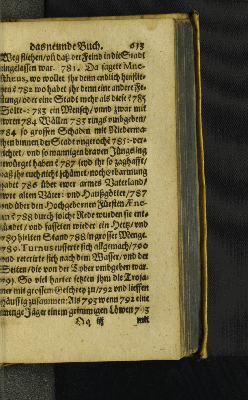 das neunde Buch. 613
Weg fliehen/ daß der Feind in die Stadt
eingelassen war. 781. Da sagete Mne-
stheus, wo wollet ihr denn endlich hinflie-
hen? 782 wo habet ihr denn eine andere Fe-
stung/ oder eine Stadt mehr als diese? 785
Solte: 783 ein Mensch/ vnnd zwar mit
ewren 784 Wällen 783 rings vmbgeben/
784 so grossen Schaden mit Niederma-
chen binnen der Stadt vngerochē 785: ver-
richtet/ vnd so mannigen braven Jüngling
erwürget haben? 787 seyd ihr so zaghafft/
daß ihr euch nicht schämet/ noch Erbarmung
habet 786 über ewer armes Vaterland/
ewre alten Väter: vnd Haußgötter/ 787
vnd über den Hochgebornen Fürsten Æne-
an? 788 durch solche Rede wurden sie ent-
zündet/ vnd fasseten wieder ein Hertz/ vnd
789 hielten Stand 788 in grosser Menge.
789. Turnus eusserte sich allgemach/ 790
vnd reterirte sich nach dem Wasser/ vnd der
Seiten/ die von der Tyber vmbgeben war.
791. So viel harter setzten ihm die Troja-
ner mit grossem Geschrey zu/ 792 vnd lieffen
häuffig zusammen: Als 793 wenn 792 eine
menge Jäger einem grimmigen Löwen 793
Qq iij mit